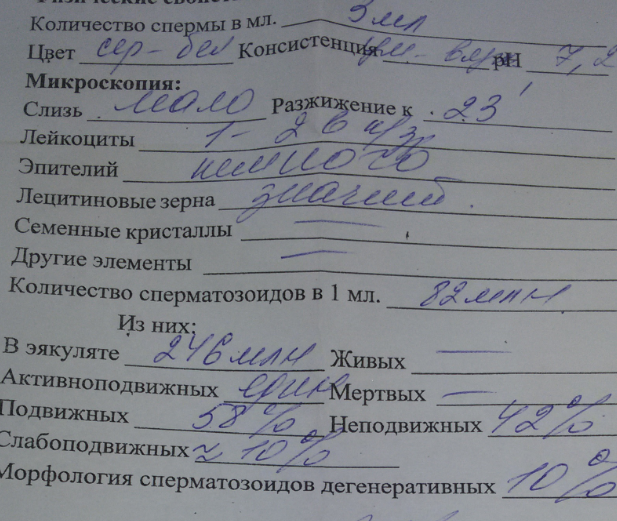 Физические
Количество спермы в мл. 3 мл
Цвет сер-бел Консистенция вязк pH 7,2
Микроскопия:
Слизь мало Разжижение к 23'
Лейкоциты 1-2 в п/зр
Эпителий немного
Лецитиновые зерна значит.
Семенные кристаллы —
Другие элементы —
Количество сперматозоидов в 1 мл. 82 млн
Из них:
В эякуляте 246 млн Живых —
Активноподвижных един Мертвых —
Подвижных 58% Неподвижных 42%
Слабоподвижных 10%
Морфология сперматозоидов дегенеративных 10%